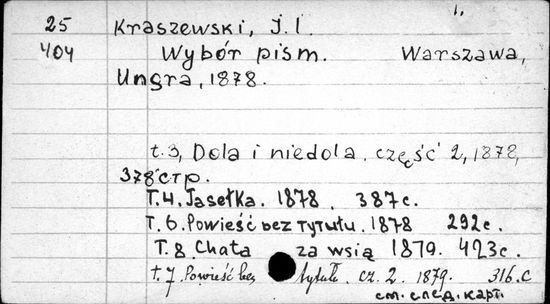 1.
25 Kraszewski, J. I.
404 Wybór pism. Warszawa,
Ungra, 1878.
t. 3, Dola i niedola, część 2, 1878,
378 стр.
Т. 4. Jasełka. 1878. 387с.
Т. 6. Powieść bez tytułu. 1878 292с.
Т. 8. Chata za wsią 1879. 423с.
t. 7 Powieść bez tytułu. cz. 2. 1879. 316.С
см. след. карт.